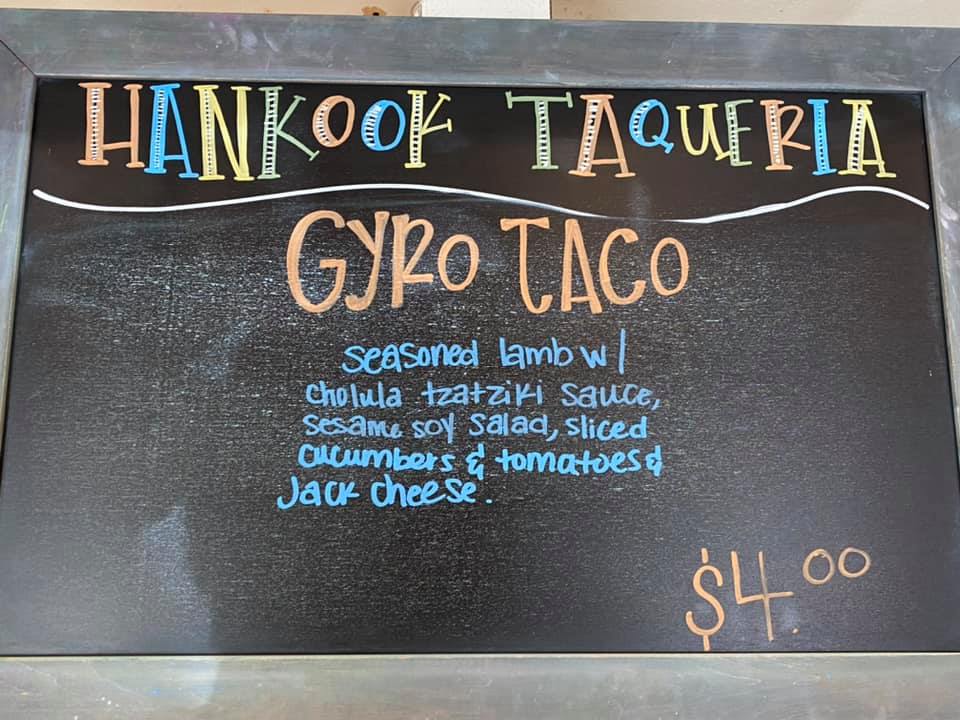 HANKOOK TAQUERIA
GYRO TACO
seasoned lamb w/
cholula tzatziki sauce,
sesame soy salad, sliced
cucumbers & tomatoes &
Jack cheese.
$4.00